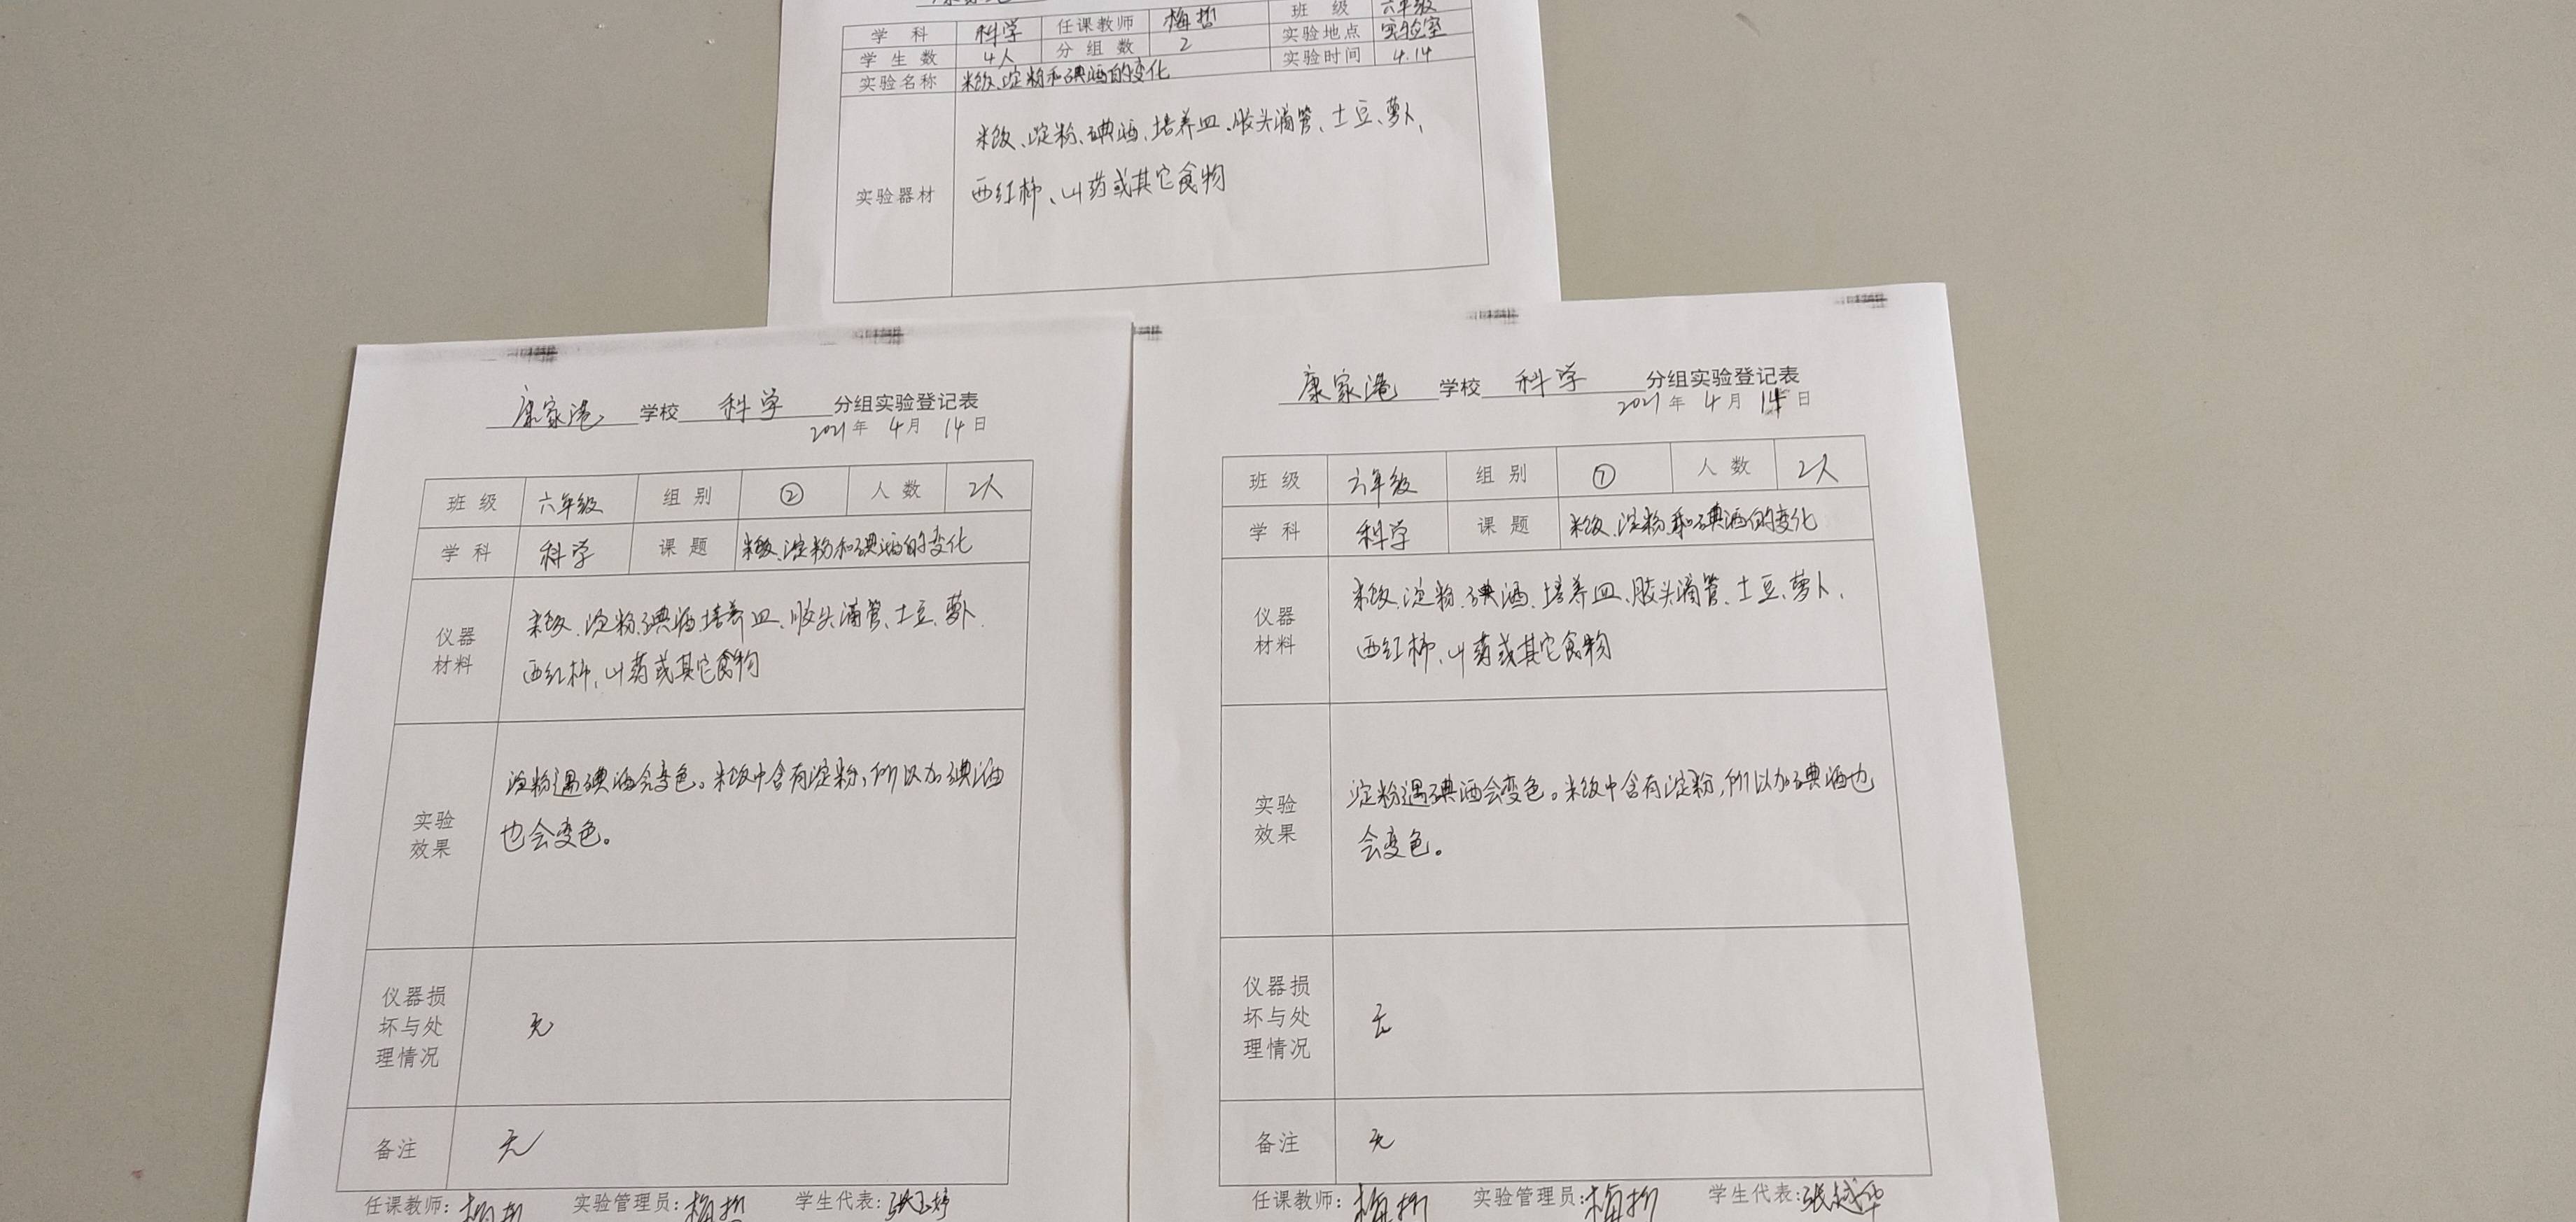 学科 科学 任课教师 梅哲 班级 六年级
学生数 4人 分组数 2 实验地点 实验室
实验时间 4.14
实验名称 米饭、淀粉和碘酒的变化
实验器材 米饭、淀粉、碘酒、培养皿、胶头滴管、土豆、萝卜、
西红柿、山药或其它食物
康家港 学校 科学 分组实验登记表
2021年 4月 14日
班级 六年级 组别 ② 人数 2人
学科 科学 课题 米饭、淀粉和碘酒的变化
仪器
材料
米饭、淀粉、碘酒、培养皿、胶头滴管、土豆、萝卜、
西红柿、山药或其它食物
实验
效果
淀粉遇碘酒会变色。米饭中含有淀粉,所以加碘酒
也会变色。
仪器损
坏与处
理情况
无
备注 无
任课教师: 梅哲 实验管理员: 梅哲 学生代表: 张玉婷
康家港 学校 科学 分组实验登记表
2021年 4月 14日
班级 六年级 组别 ① 人数 2人
学科 科学 课题 米饭、淀粉和碘酒的变化
仪器
材料
米饭、淀粉、碘酒、培养皿、胶头滴管、土豆、萝卜、
西红柿、山药或其它食物
实验
效果
淀粉遇碘酒会变色。米饭中含有淀粉,所以加碘酒也
会变色。
仪器损
坏与处
理情况
无
备注 无
任课教师: 梅哲 实验管理员: 梅哲 学生代表: 张越华